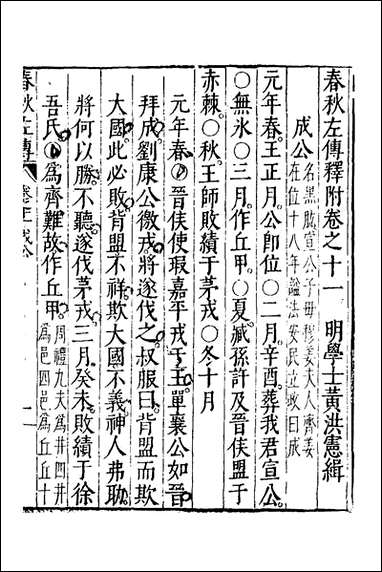 春秋左傳釋附卷之十一　明學士黃洪憲緝
成公
名黑肱宣公子母穆姜夫人齊姜
在位十八年謚法安民立政曰成
元年春王正月公即位○二月辛酉葬我君宣公
○無氷○三月作丘甲○夏臧孫許及晉侯盟于
赤棘○秋王師敗績于茅戎○冬十月
元年春晉侯使瑕嘉平戎于王單襄公如晉
拜成劉康公徼戎將遂伐之叔服曰背盟而欺
大國此必敗背盟不祥欺大國不義神人弗助
將何以勝不聽遂伐茅戎三月癸未敗績于徐
吾氏○爲齊難故作丘甲
周禮九夫爲井四井
爲邑四邑爲丘丘十
春秋左傳
卷十一成公
一